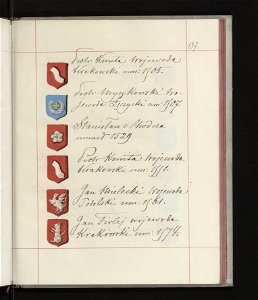 137.
Piotr Kmita Wojewoda
Krakowski um: 1505.
Piotr Myszkowski Wo-
jewoda Łęczycki um: 1507
Stanisław z Chodcza
umarł 1529
Piotr Kmita Wojewoda
Krakowski um: 1553.
Jan Mielecki Wojewoda
Podolski um: 1561.
Jan Firlej Wojewoda
Krakowski um: 1574.